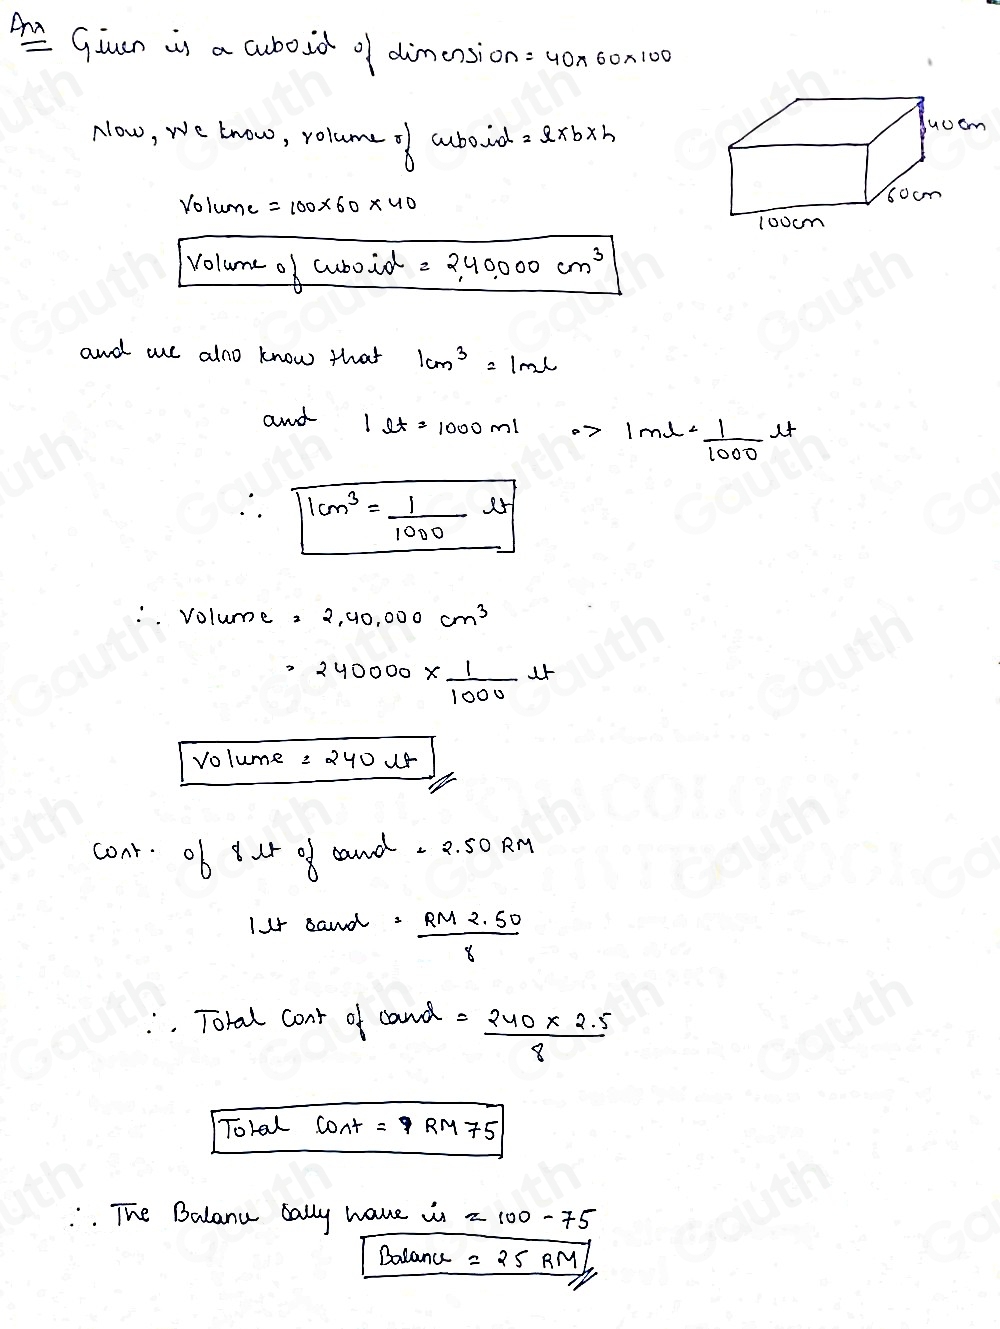 Ans Given is a cuboid of dimension = 40 x 60 x 100
Now, we know, volume of cuboid = l x b x h
Volume = 100 x 60 x 40
Volume of cuboid = 2,40,000 cm³
40 cm
60 cm
100 cm
and we also know that 1cm³ = 1ml
and 1 lt = 1000 ml => 1 ml = 1/1000 lt
∴ 1cm³ = 1/1000 lt
∴ Volume = 2,40,000 cm³
= 240000 x 1/1000 lt
Volume = 240 lt
Cost. of 8 lt of sand = 2.50 RM
1 lt sand = RM 2.50/8
∴ Total Cost of sand = 240 x 2.5/8
Total Cost = RM 75
∴ The Balance Sally have is = 100 - 75
Balance = 25 RM
Gauth